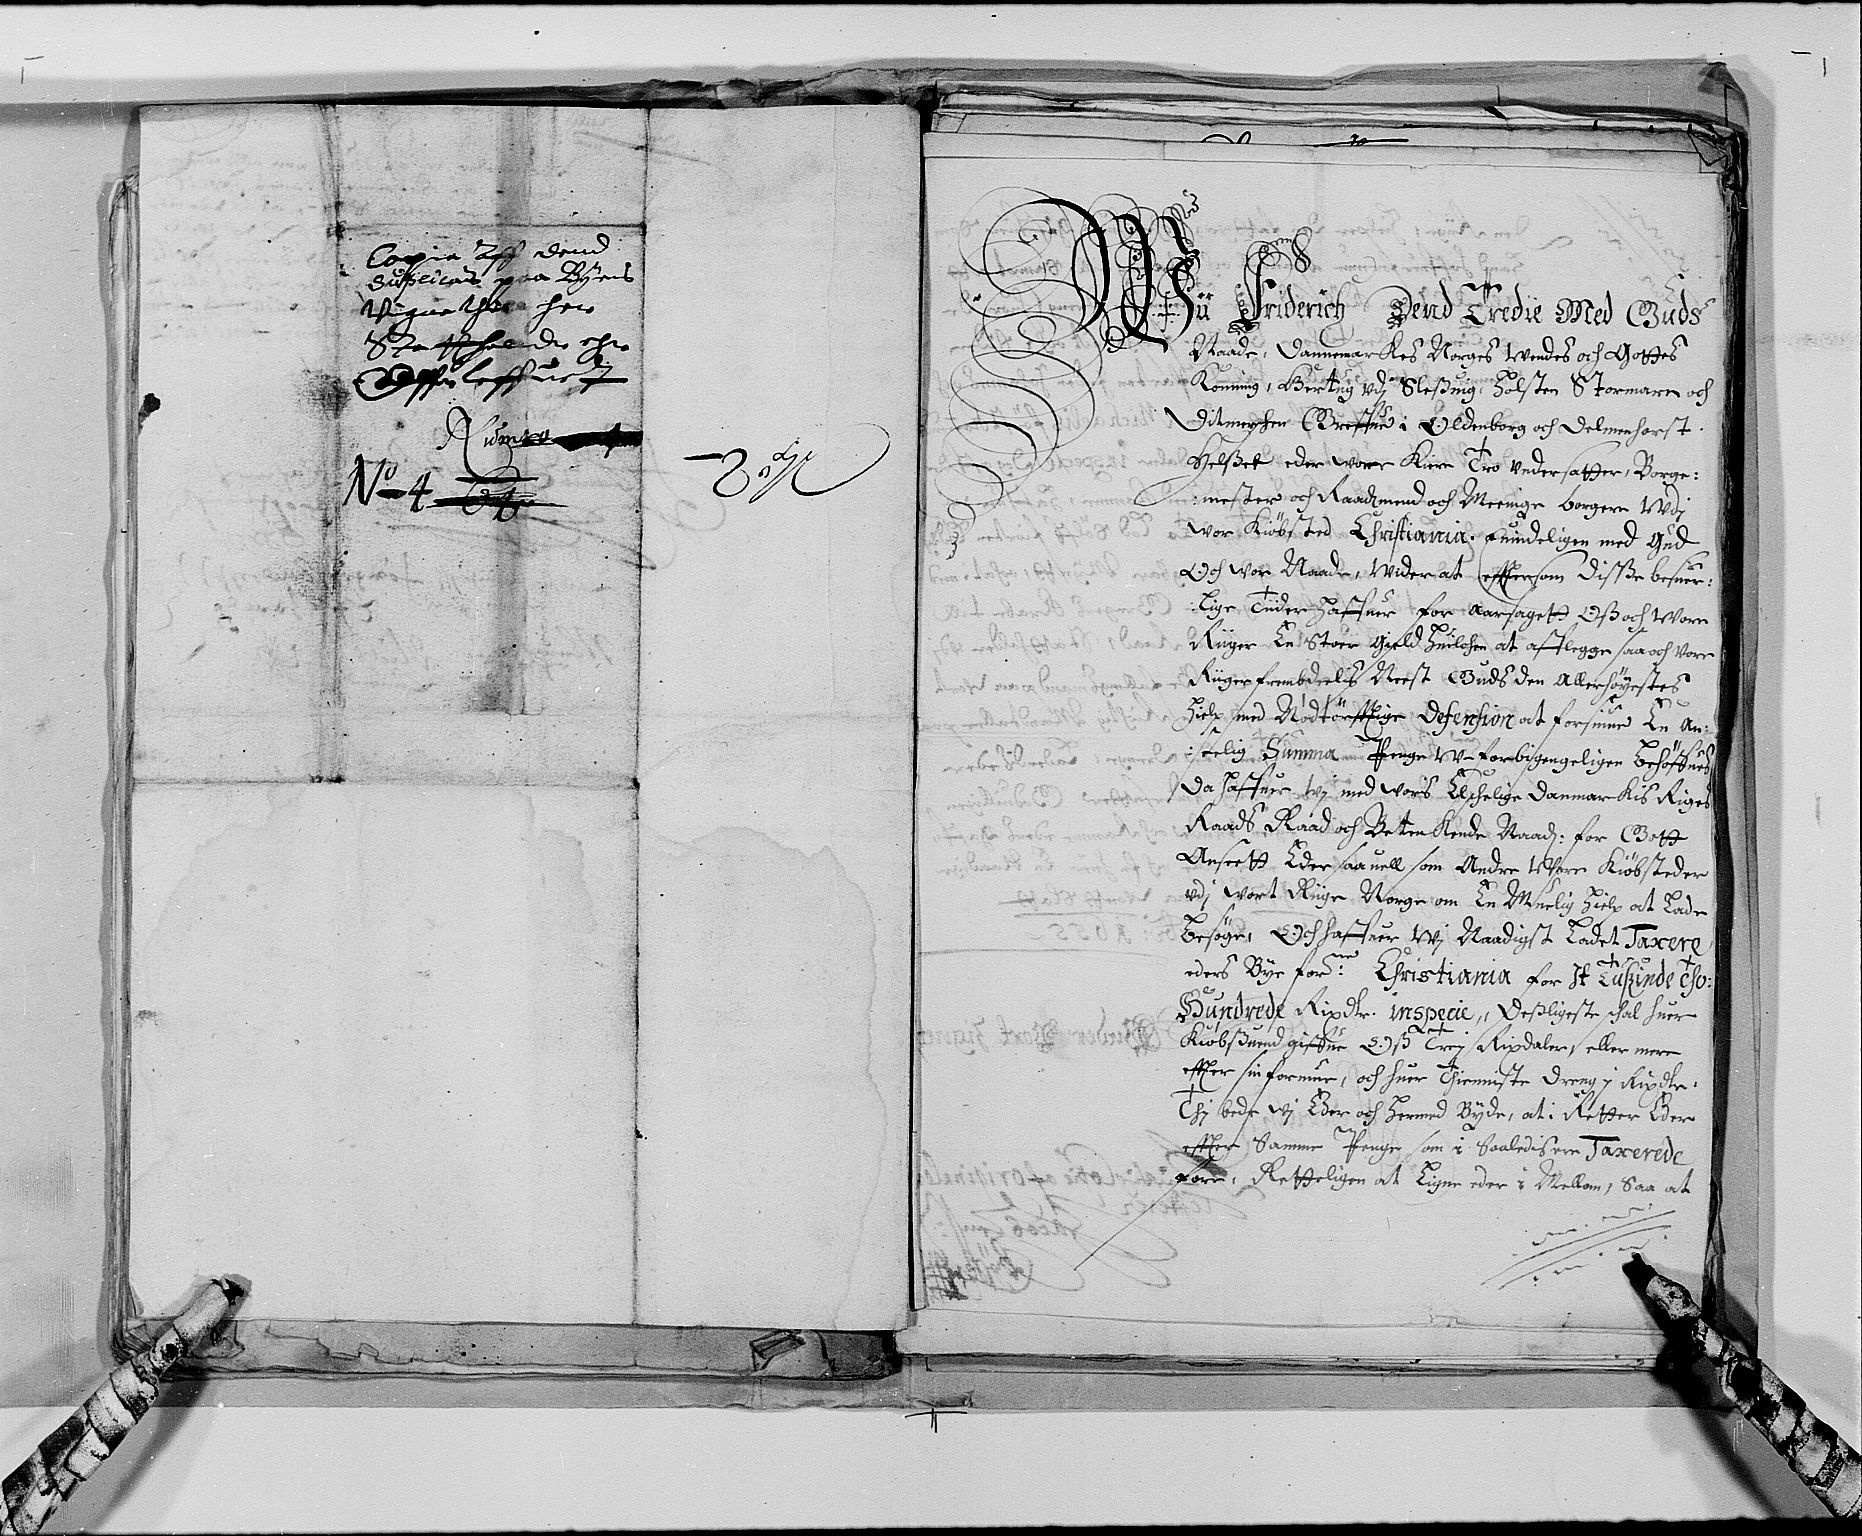 Copia Aff dend
Suplicas paa Byens
Vegne thill her
Statholder
Offuerleffuert
Numero 4
No 4
Wii Friderich Dend Tredie Med Guds
Naade, Dannemarkes Norges Wendes och Gottes
Konning, Hertug vdj Sleßuig Holsten Stormarn och
Ditmerschen Greffue i Oldenborg och Delmenhorst.
Helßer eder wore Kiere Tro Vndersatter, Borge:
:mester och Raadmend och Meenige borgere Vdj
wor Kiöbsted Christiania. kundeligen med Gud
Och wor Naade, Wider at effttersom disse besuer:
:lige Tiider Haffuer foraarsagett Oß och Wore
Riiger En Stoer gield Huilchen at afflegge saa och Vore
Riiger frembdeelis Nest Guds den Allerhöyestes
Hielp med Nödtörfftige Defension at forsiune En An:
:seelig Summa Penge W-forbigengeligen behöffues
Da haffuer wj med wors Elschelige Danmarckis Riges
Raads Raad och Betenkende Naad: for Gott
Anseett Eder saauell som Andre Wore Kiöbsteder
vdj wort Riige Norge om En Muelig Hielp at Lade
besöge, Och haffuer Wj Naadigst Ladet Taxere
eders Bye forne: Christiania for It Tußinde Tho:
Hundrede Rixdlr. inspecie, Deßligeste schal huer
Kiöbsuend giffue Oß Trej Rixdaler, eller mere
effter sin formue, och huer Thienniste dreng j Rixdlr.
Thj bede wj Eder och Hermed Byde, at i Retter Eder
effter Samme Penge som i Saaledis ere Taxerede
fore, Retteligen at Ligne eder i Mellom, Saa at